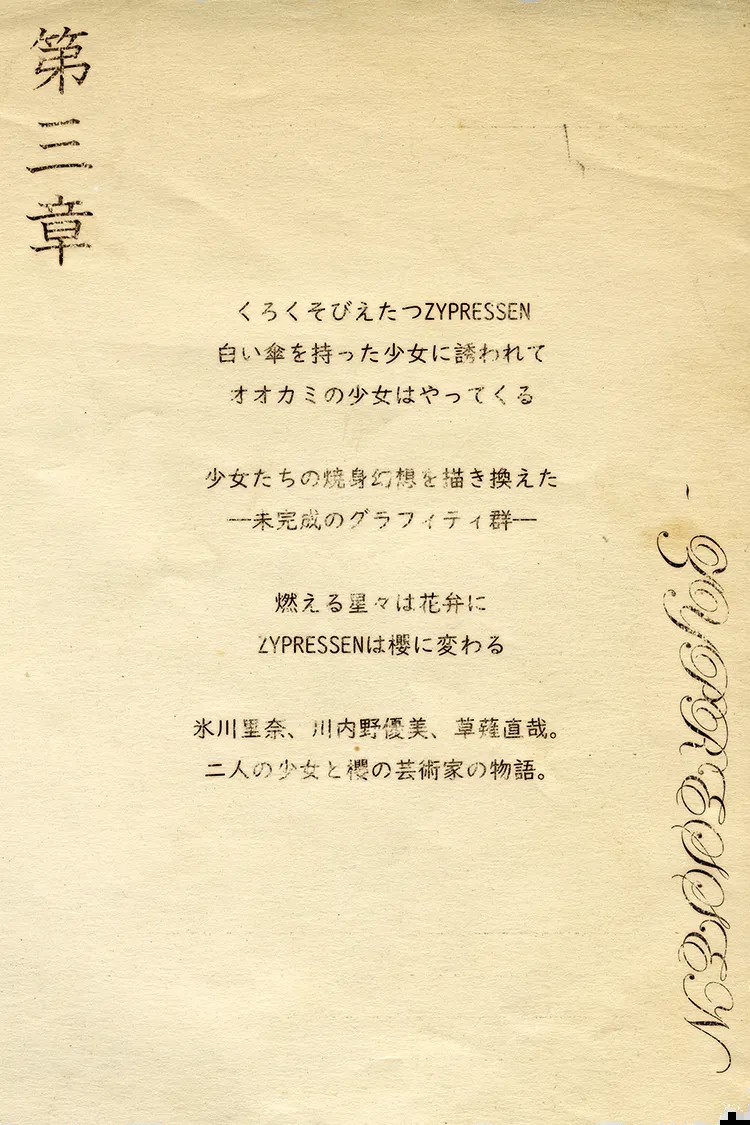 第三章
くろくそびえたつZYPRESSEN
白い傘を持った少女に誘われて
オオカミの少女はやってくる
少女たちの焼身幻想を描き換えた
―未完成のグラフィティ群―
燃える星々は花弁に
ZYPRESSENは櫻に変わる
氷川里奈、川内野優美、草薙直哉。
二人の少女と櫻の芸術家の物語。
ZYPRESSEN